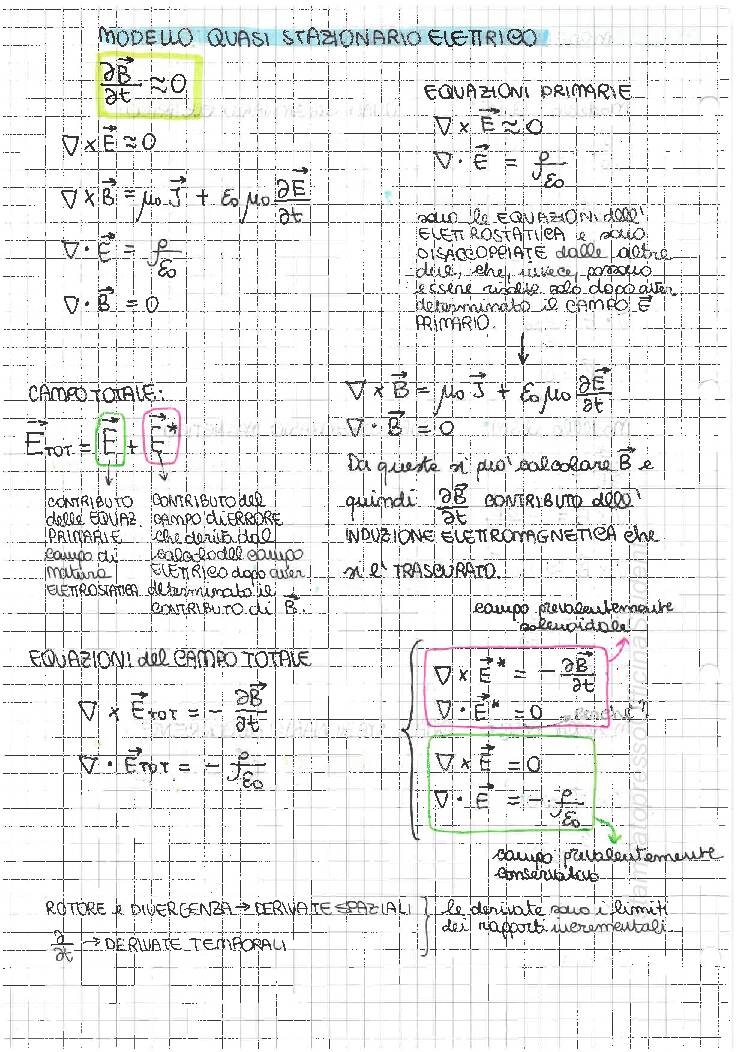 MODELLO QUASI STAZIONARIO ELETTRICO
∂B⃗/∂t ≈ 0
∇ × E⃗ ≈ 0
∇ × B⃗ = μ₀ J⃗ + ε₀ μ₀ ∂E⃗/∂t
∇ · E⃗ = ρ/ε₀
∇ · B⃗ = 0
EQUAZIONI PRIMARIE
∇ × E⃗ ≈ 0
∇ · E⃗ = ρ/ε₀
sono le EQUAZIONI dell'
ELETTROSTATICA e sono
DISACCOPPIATE dalle altre
due, che, invece, possono
essere risolte solo dopo aver
determinato il CAMPO E⃗
PRIMARIO.
∇ × B⃗ = μ₀ J⃗ + ε₀ μ₀ ∂E⃗/∂t
∇ · B⃗ = 0
Da queste si può calcolare B⃗ e
quindi ∂B⃗/∂t CONTRIBUTO dell'
INDUZIONE ELETTROMAGNETICA che
si è TRASCURATO.
CAMPO TOTALE:
E⃗TOT = E⃗ + E⃗*
CONTRIBUTO
delle EQUAZ.
PRIMARIE
campo di
natura
ELETTROSTATICA
CONTRIBUTO del
CAMPO di ERRORE
che deriva dal
calcolo del campo
ELETTRICO dopo aver
determinato il
CONTRIBUTO di B⃗.
EQUAZIONI del CAMPO TOTALE
∇ × E⃗TOT = - ∂B⃗/∂t
∇ · E⃗TOT = - ρ/ε₀
campo prevalentemente
solenoidale
∇ × E⃗* = - ∂B⃗/∂t
∇ · E⃗* = 0 perché?
∇ × E⃗ = 0
∇ · E⃗ = - ρ/ε₀
campo prevalentemente
conservativo
ROTORE e DIVERGENZA → DERIVATE SPAZIALI
∂/∂t → DERIVATE TEMPORALI
le derivate sono i limiti
dei rapporti incrementali